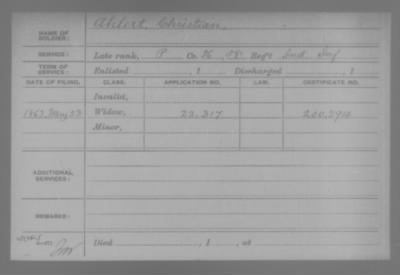 NAME OF SOLDIER: Ahlert, Christian,
SERVICE: Late rank, P Co. K, 58" Reg't Ind Inf
TERM OF SERVICE: Enlisted , 1 Discharged , 1
DATE OF FILING. CLASS. APPLICATION NO. LAW. CERTIFICATE NO.
Invalid,
1863 May 23 Widow, 22.317
Minor,
ADDITIONAL SERVICES:
REMARKS:
Died , 1 , at